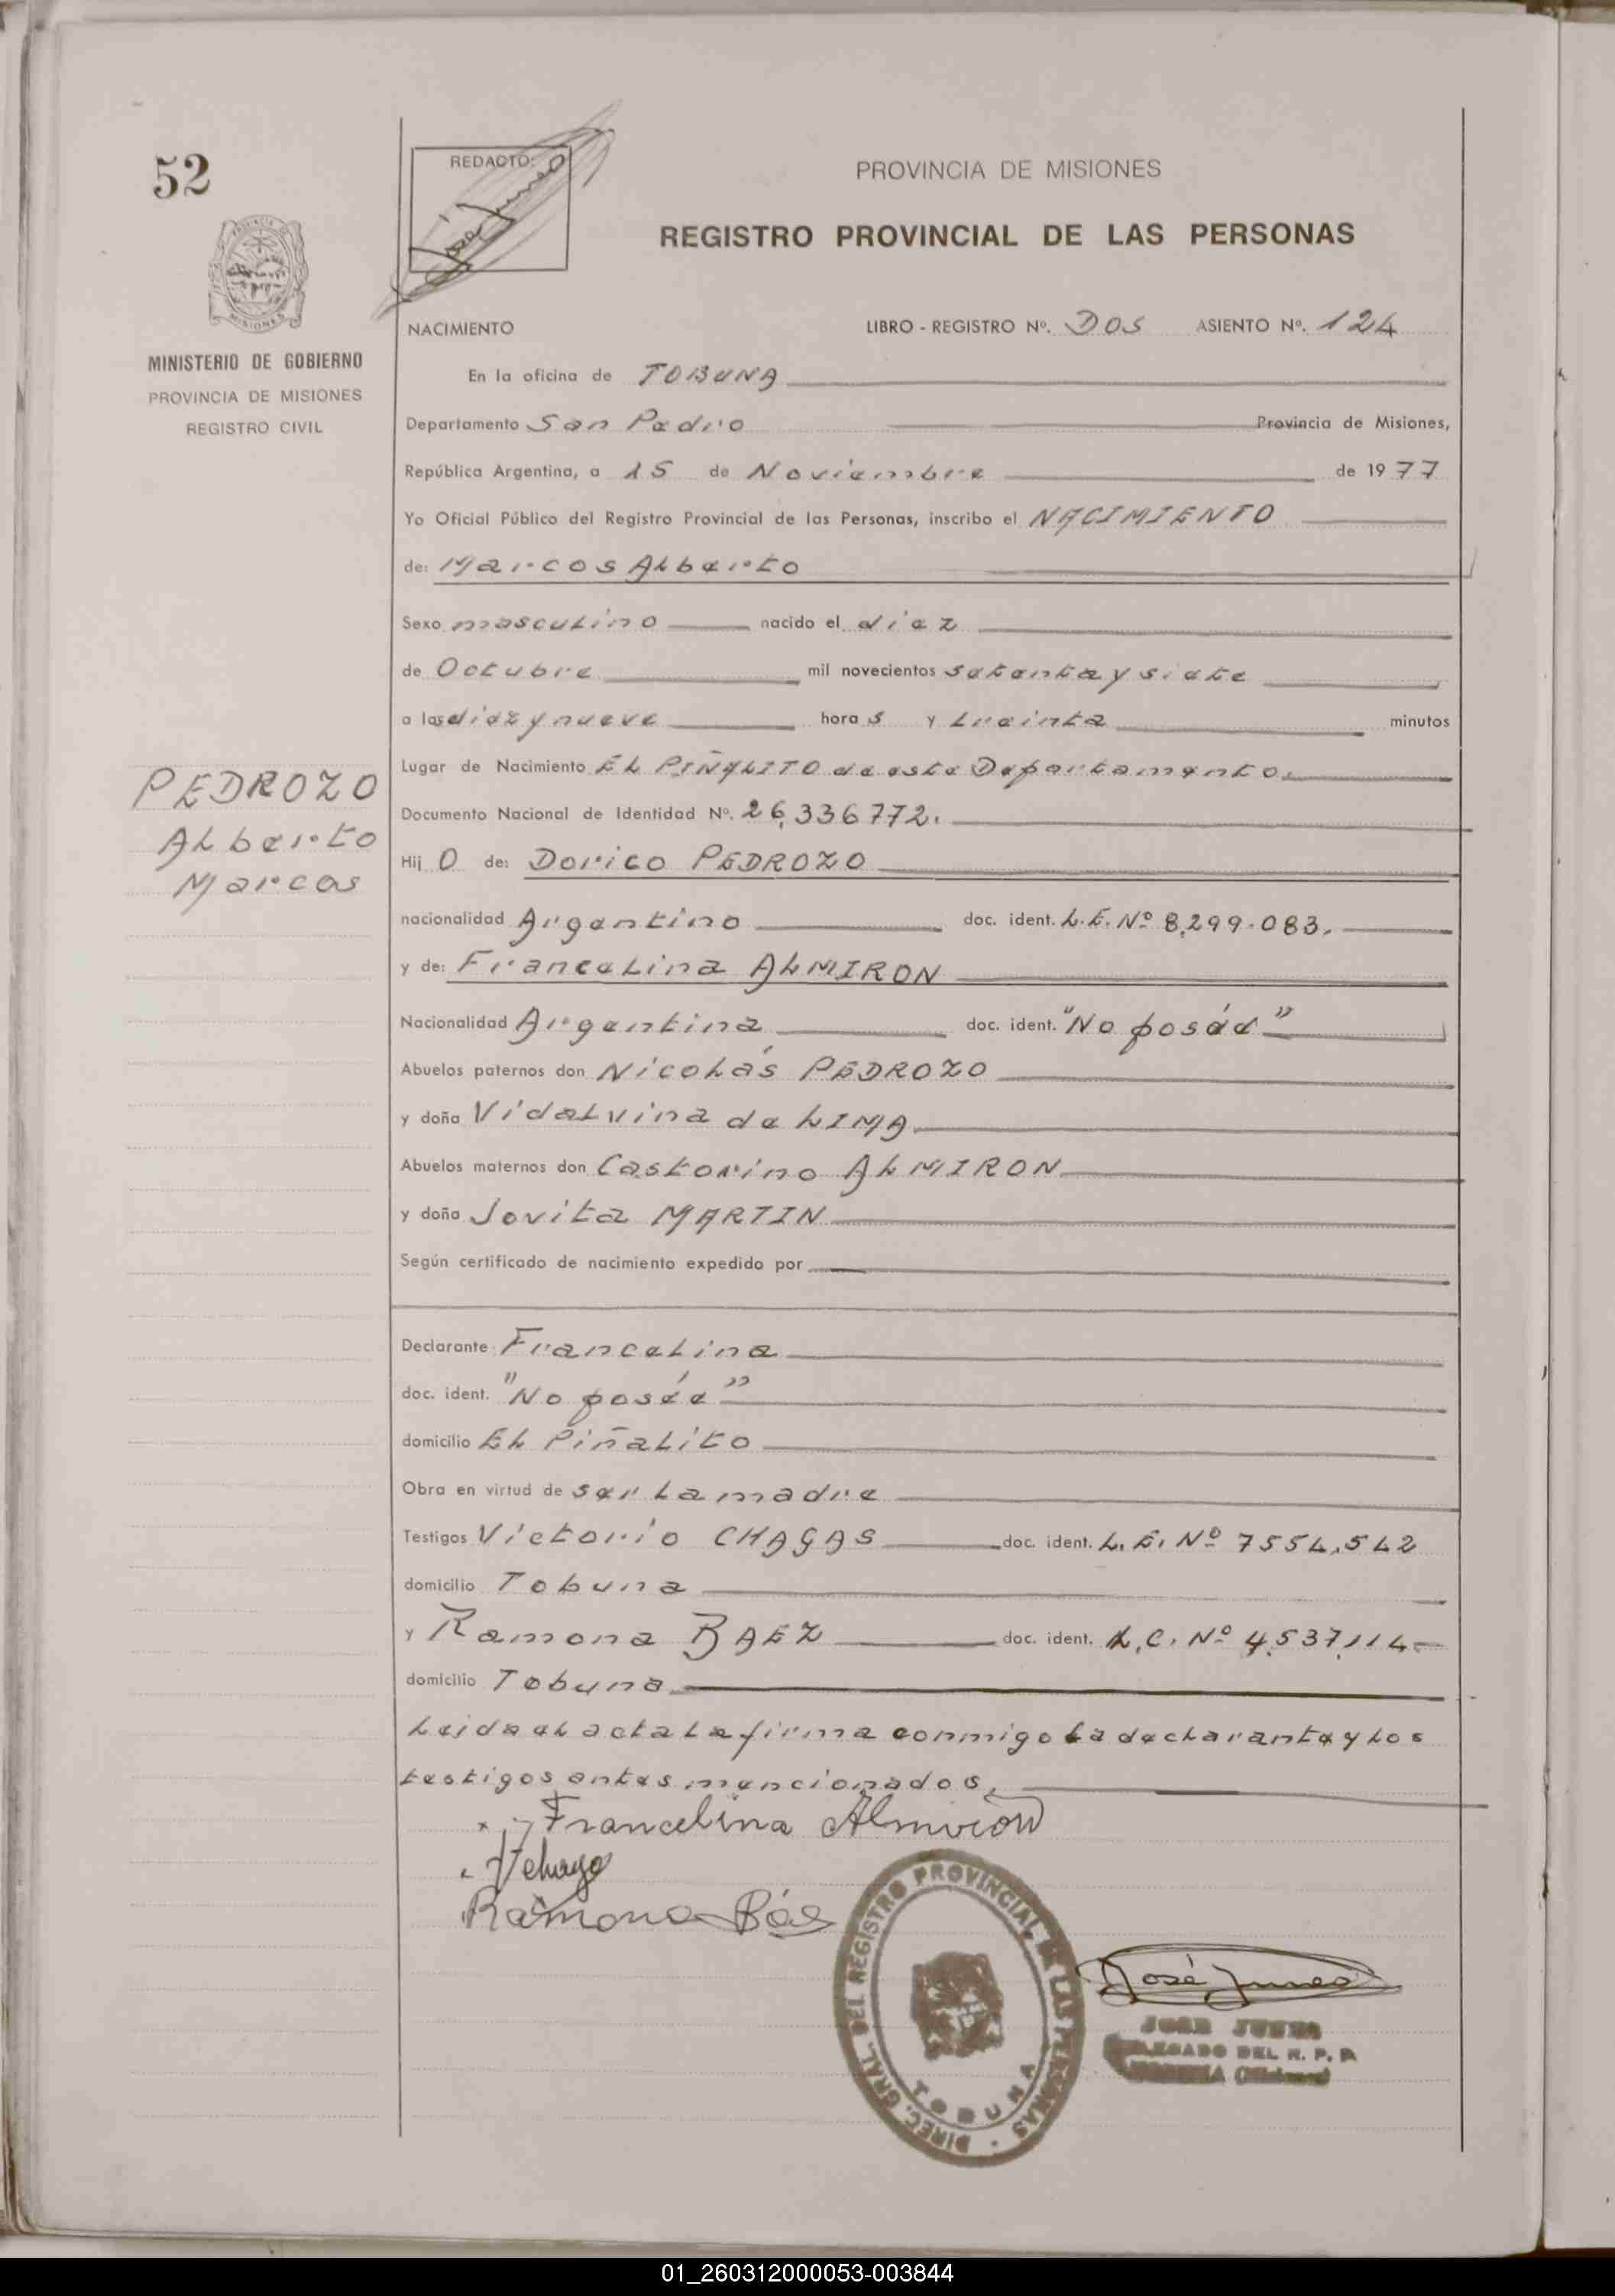 52
REDACTO:
PROVINCIA DE MISIONES
REGISTRO PROVINCIAL DE LAS PERSONAS
MISIONES
MINISTERIO DE GOBIERNO
PROVINCIA DE MISIONES
REGISTRO CIVIL
NACIMIENTO LIBRO - REGISTRO Nº. DOS ASIENTO Nº. 124
En la oficina de TOBUNA
Departamento San Pedro Provincia de Misiones,
República Argentina, a 15 de Noviembre de 1977
Yo Oficial Público del Registro Provincial de las Personas, inscribo el NACIMIENTO
de: Marcos Alberto
Sexo masculino nacido el diez
de Octubre mil novecientos setenta y siete
a las diez y nueve hora s y treinta minutos
Lugar de Nacimiento EL PIÑALITO de este Departamento.
Documento Nacional de Identidad Nº. 26.336772.
PEDROZO
Alberto
Marcos
Hij O de: Dorico PEDROZO
nacionalidad Argentino doc. ident. L.E. Nº 8.299.083.
y de: Francelina ALMIRON
Nacionalidad Argentina doc. ident. "No poséé"
Abuelos paternos don Nicolás PEDROZO
y doña Vidalvina de LIMA
Abuelos maternos don Castorino ALMIRON
y doña Jovita MARTIN
Según certificado de nacimiento expedido por
Declarante Francelina
doc. ident. "No poséé"
domicilio El Piñalito
Obra en virtud de ser la madre
Testigos Victorio CHAGAS doc. ident. L.E. Nº 7554.542
domicilio Tobuna
y Ramona BAEZ doc. ident. L.C. Nº 4.537.114
domicilio Tobuna
Leida el acta la firma conmigo la declarante y los
testigos antes mencionados.
Francelina Almiron
Ramona Báe
DIREC. GRAL. DEL REGISTRO PROVINCIAL DE LAS PERSONAS
TOBUNA
José
JOSE
DELEGADO DEL R. P. P.
TOBUNA (Misiones)
01_260312000053-003844